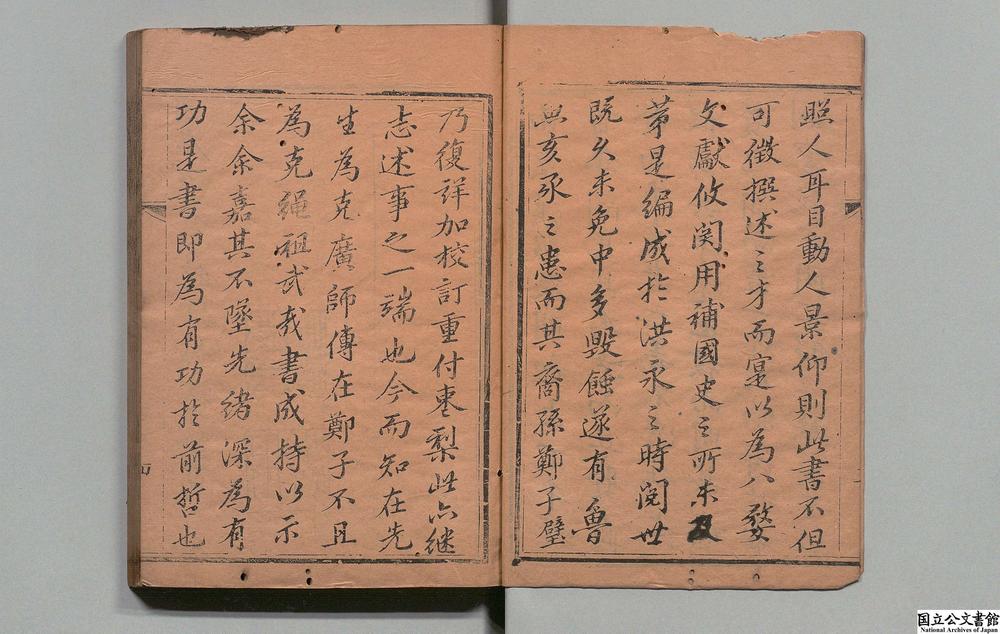 照人耳目動人景仰則此書不但
可徵撰述之才而寔以為八婺
文獻攸関用補國史之所未及
第是編成於洪永之時閱世
既久未免中多毀蝕遂有魯
魚亥豕之患而其裔孫鄭子璧
乃復詳加校訂重付棗梨此亦継
志述事之一端也今而知在先
生為克廣師傳在鄭子不且
為克繩祖武哉書成持以示
余余嘉其不墜先緒深為有
功是書即為有功於前哲也
国立公文書館
National Archives of Japan